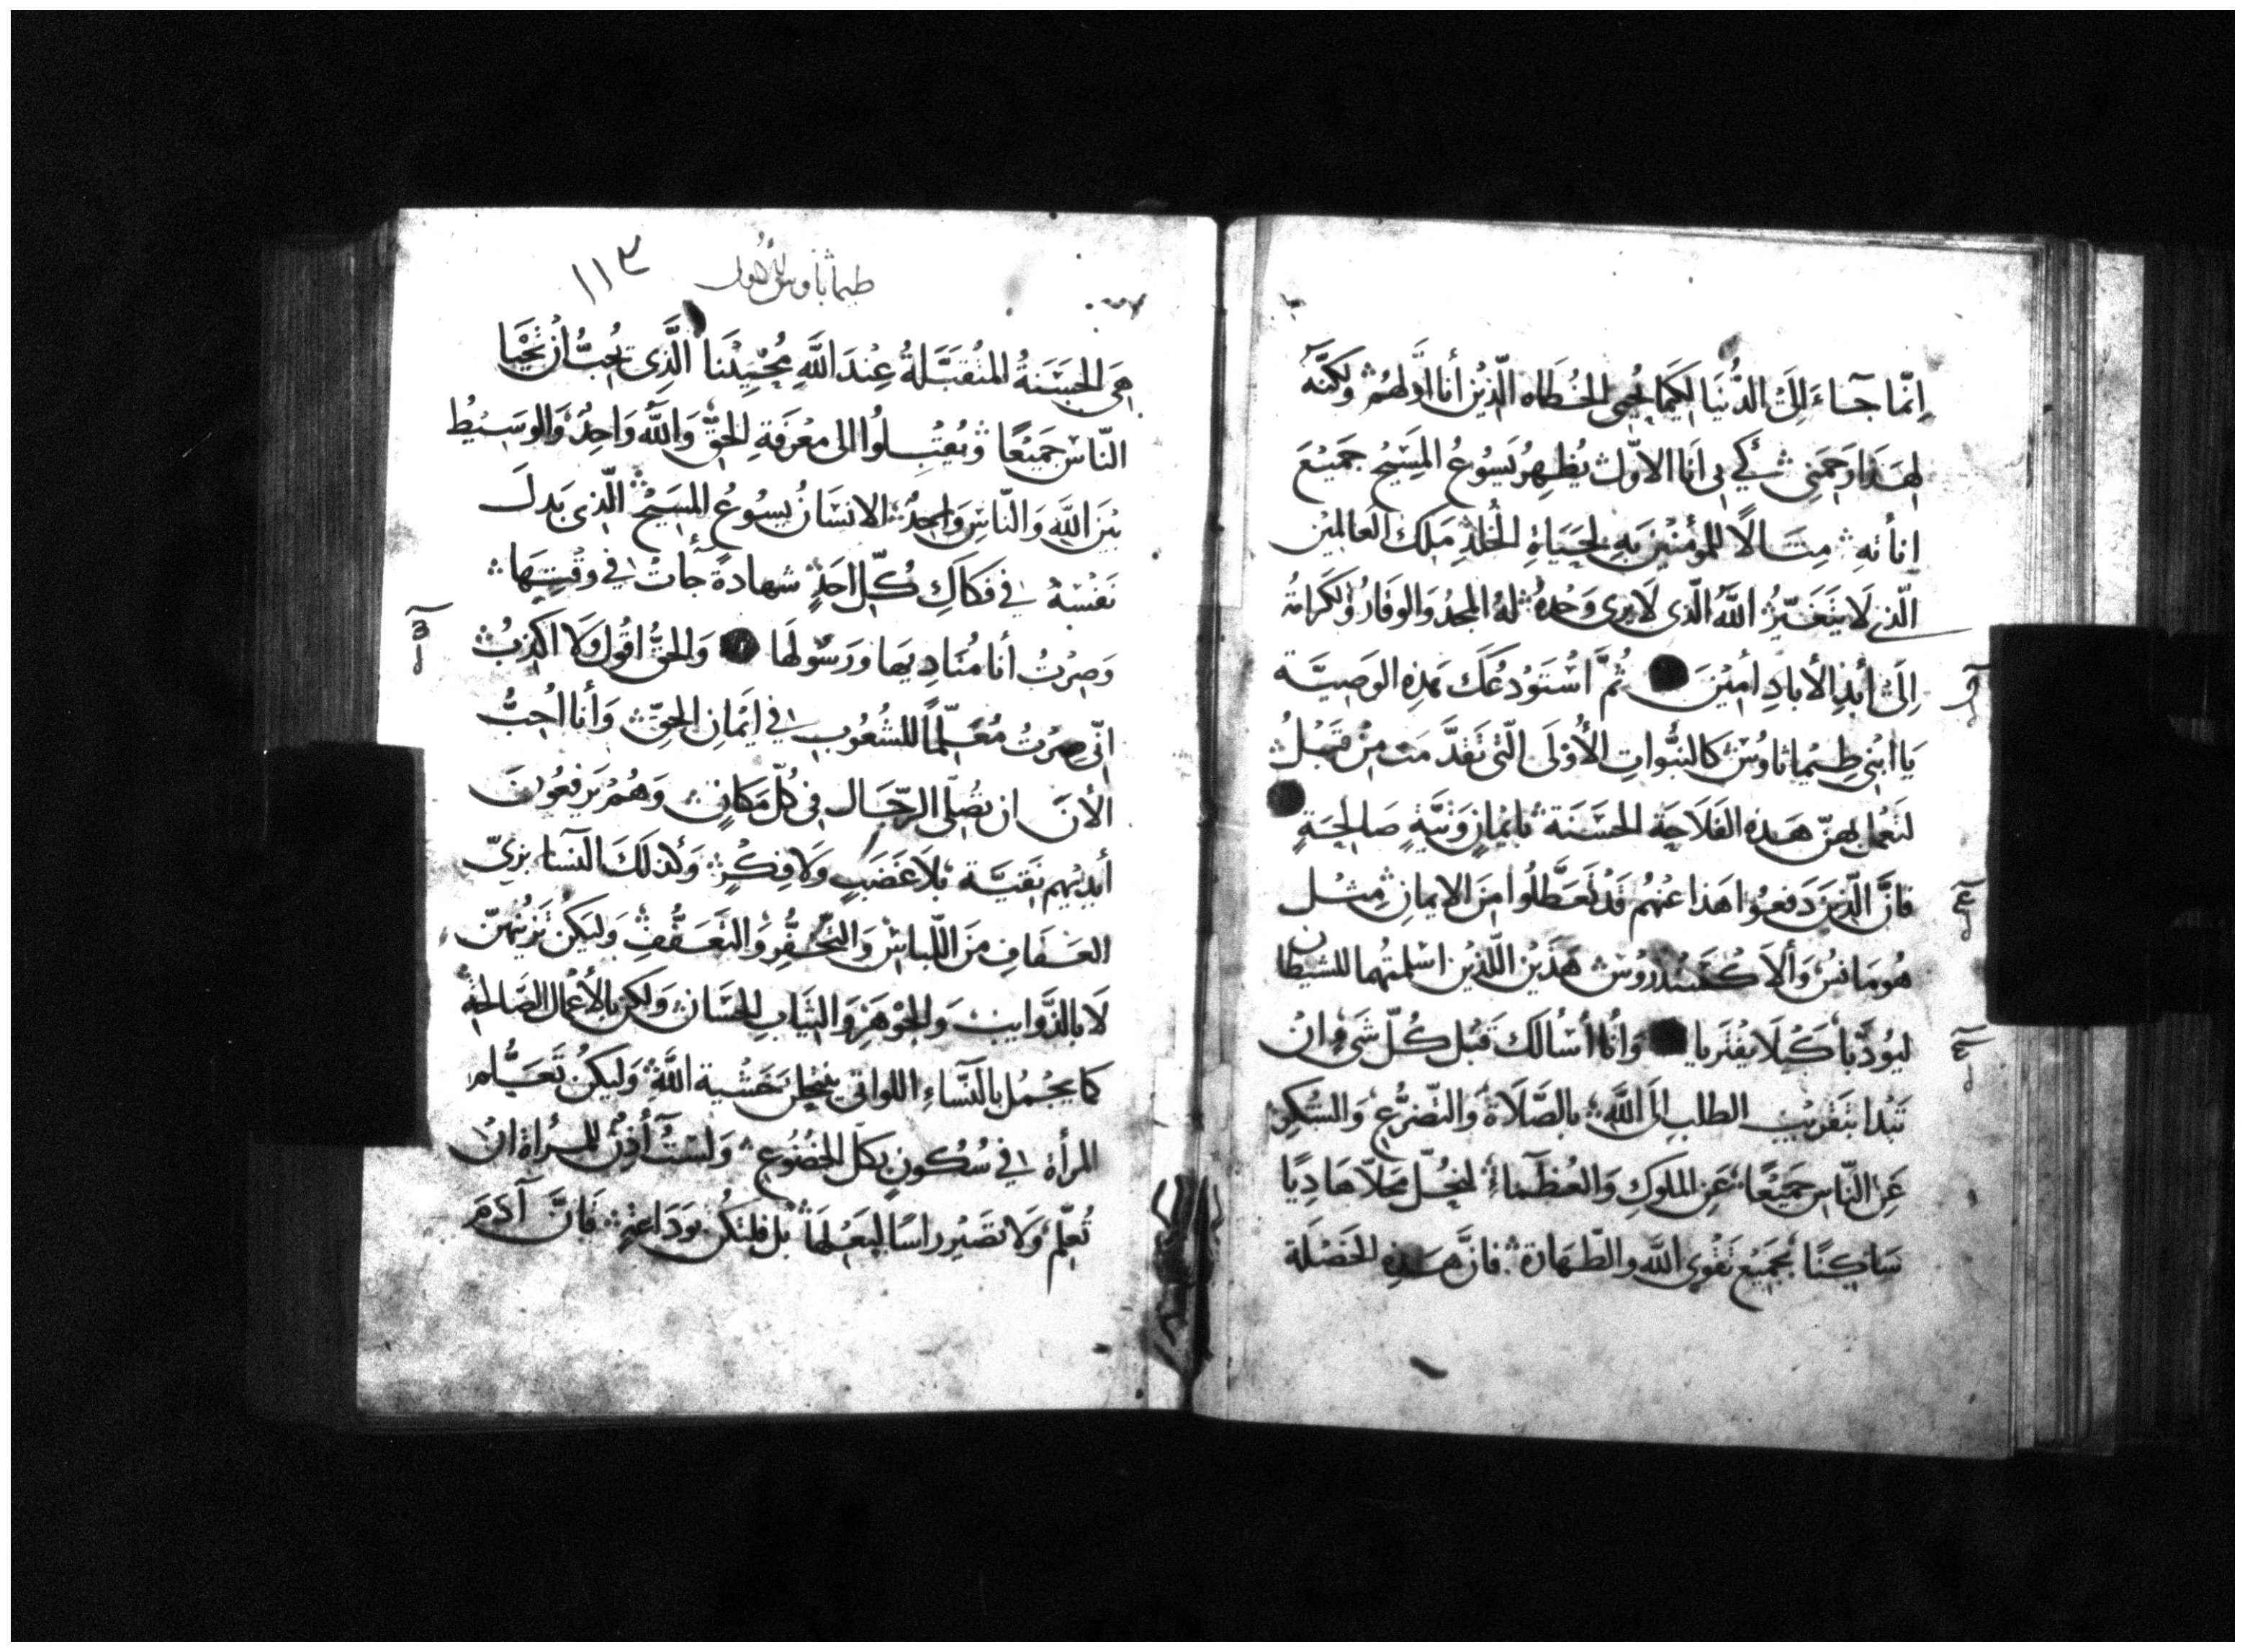 اِنَّما جآءَ اِلَى الدُّنيَا لِكَيمَا يُحيى الخُطاه الّذين أنا اَوّلهُم ولكنّه
لِهَذا رَحَمَنِى كَي بى اَنا الاوّل يُظهِرُ يَسُوعُ المسِيحُ جَميعَ
اناُتهِ مِثالاً للمُؤمنِينَ بهِ لِحَيَاةِ الخُلدِ مَلِك العَالمِين
الّذى لَا يَتَغَيّرُ اللَّهُ الّذى لَا يرى وَحْدهُ لهُ المجدُ وَالوقارُ وَالكَرَامةُ
اِلَى أبَدِ الأبادِ اَمِيْنَ ثُمَّ اَسْتَودُعُكَ بهَذِهِ الوَصِيّة
يَا ابنِى طِيمَاثاوُسَ كَالنبُّواتِ الأُوْلَى الّتى تَقدَّمَت مِنْ قَبْلُ
لتَعمل بهِنّ هَذِه الفَلَاحَة الحسَنَة بايمانٍ وَنيَّةٍ صَالِحَةٍ
فانَّ الّذينَ دَفعُوا هَذا عنهُم قَدْ تَعَطَّلُوا مِنَ الايمانِ مِثل
هُومَانسُ وَألاَكسَندرُوسَ هَذَيْنِ اللّذين اسْلمتهُما للشيطان
ليوُدَّبا كَيْلَا يفترَيا وَانا أسْالكَ قَبْل كُلّ شَىءٍ اَنْ
تَبْدا بتَقريبِ الطلبِ اِلَى اللَّهِ بالصَّلَاةِ وَالتضرُّعِ وَالشكرِ
عَنِ النّاسِ جَمِيعًا عَنِ الملوكِ وَالعُظَمآءِ لنحُلّ مَحَلّا هَادِيًا
سَاكِنًا بجَميعِ تَقْوى اللَّه والطّهَارَة فانَّ هَذِهِ الخَصْلَة
طيماثاوس الاولى
١١٣
هِىَ الحسَنَةُ المتُقَبَّلةُ عِنْدَ اللَّهِ مُحيِيْنَا الَّذِى يُحِبُّ اَن يَحْيَا
النّاسُ جَمِيعًا وَيُقبِلُوا الى مَعرفَةِ الحَقِّ وَاللَّه وَاحِدٌ وَالوَسِيْطُ
بَيْنَ اللَّهِ وَالنّاسِ وَاحِدٌ الانسَانُ يسُوعُ المسِيحُ الّذِى بَدلَ
نَفْسَهُ فى فكَاكِ كُلّ اَحَدٍ شهادةً جَآت فى وقتِهَا
وَصِرْتُ أنا مُنادِيهَا وَرسُولهَا وَالحقُّ اقُول وَلَا اَكذبُ
انّى صِرْتُ مُعَلِّمًا للشُعُوبِ فى اَيْمَانِ الحقِّ وَأنا اُحِبُّ
الاَنَ ان يُصَلّى الرّجَال فى كُلّ مَكَانٍ وَهُمْ يَرفعُونَ
أيدِيهِم نَقيَّة بلَا غَضَبٍ ولَا فِكْرٍ وَكذلكَ النّسَا بزىّ
العَفافِ مِنَ اللّباسِ وَالتخفُّرِ وَالتَعَفُّفِ وَليَكُن تَزينهنّ
لَا بالذَّوايبِ وَالجَوْهَرِ وَالثِيَابِ الحسَانِ وَلكِن بالأعْمال الصَّالحة
كما يَجْمُل بالنّسَاءِ اللواتى ينتحِلنَ خَشية اللَّهِ وَليكُن تَعَلُّم
المرأة فى سُكُونٍ بكل الخضُوعِ وَلسْتُ آذنُ للمرأة اَنْ
تُعلّم وَلَا تصَيْر راسًا لِبَعْلِهَا بل فلتكُن بوَدَاعَةٍ فانَّ آدَمَ